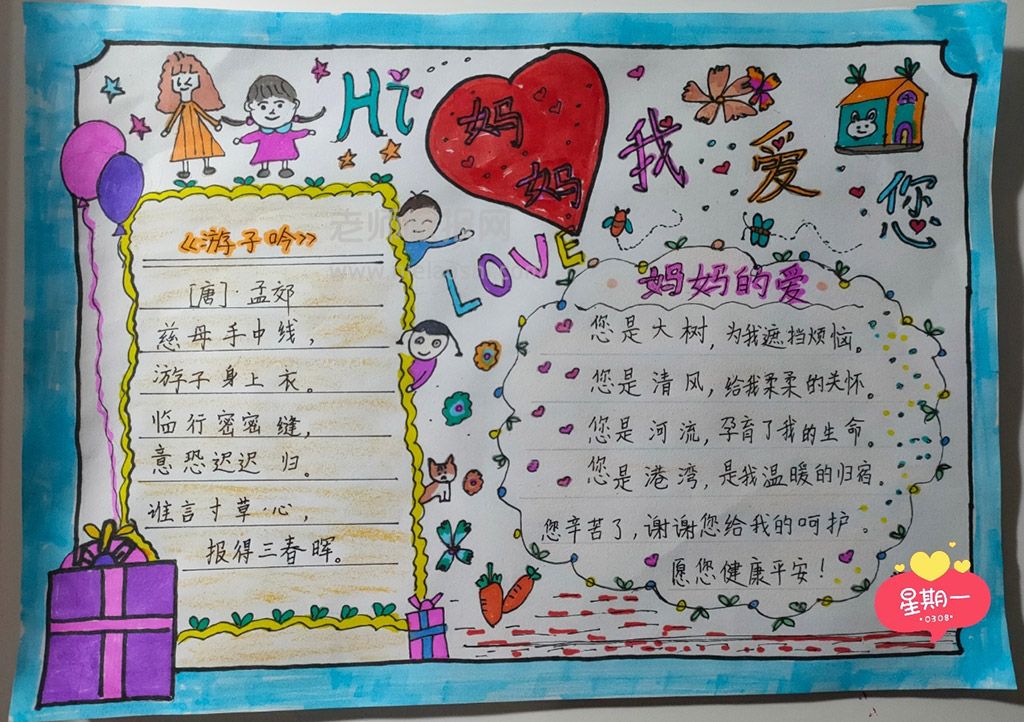 Hi 妈妈 我爱您
LOVE
《游子吟》
[唐]·孟郊
慈母手中线，
游子身上衣。
临行密密缝，
意恐迟迟归。
谁言寸草心，
报得三春晖。
妈妈的爱
您是大树，为我遮挡烦恼。
您是清风，给我柔柔的关怀。
您是河流，孕育了我的生命。
您是港湾，是我温暖的归宿。
您辛苦了，谢谢您给我的呵护。
愿您健康平安！
星期一
·0308·